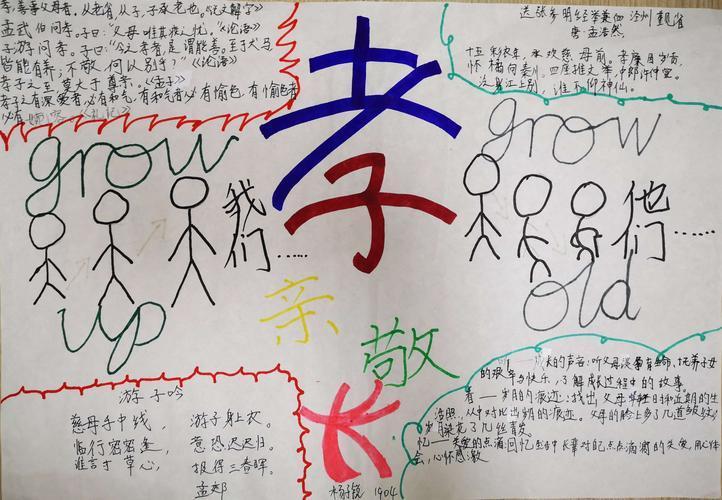 孝，善事父母者。从老省，从子，子承老也。《说文解字》
孟武伯问孝。子曰："父母唯其疾之忧。"《论语》
子游问孝。子曰："今之孝者，是谓能养。至于犬马
皆能有养；不敬，何以别乎？"《论语》
孝子之至，莫大于尊亲。《孟子》
孝子之有深爱者，必有和气，有和气者必有愉色，有愉色者
必有婉容。《礼记》
送张参明经举兼向泾州觐省
唐·孟浩然
十五彩衣年，承欢慈母前。孝廉因岁贡，
怀橘向秦川。四座推文举，中郎许仲宣。
泛舟江上别，谁不仰神仙。
孝
grow
我们……
up
grow
他们……
old
亲
敬
长
游子吟
慈母手中线， 游子身上衣。
临行密密缝， 意恐迟迟归。
谁言寸草心， 报得三春晖。
孟郊
的声音：听父母谈
的艰辛与快乐，了解成长过程中的故事。
看——岁月的痕迹：找出父母年轻时和近期的生
活照，从中对比出岁月的痕迹。父母的脸上多了几道皱纹，
岁月染花了几丝青发。
忆——关爱的点滴：回忆生活中长辈对自己点点滴滴的关爱，用心体
会，心怀感激
1904